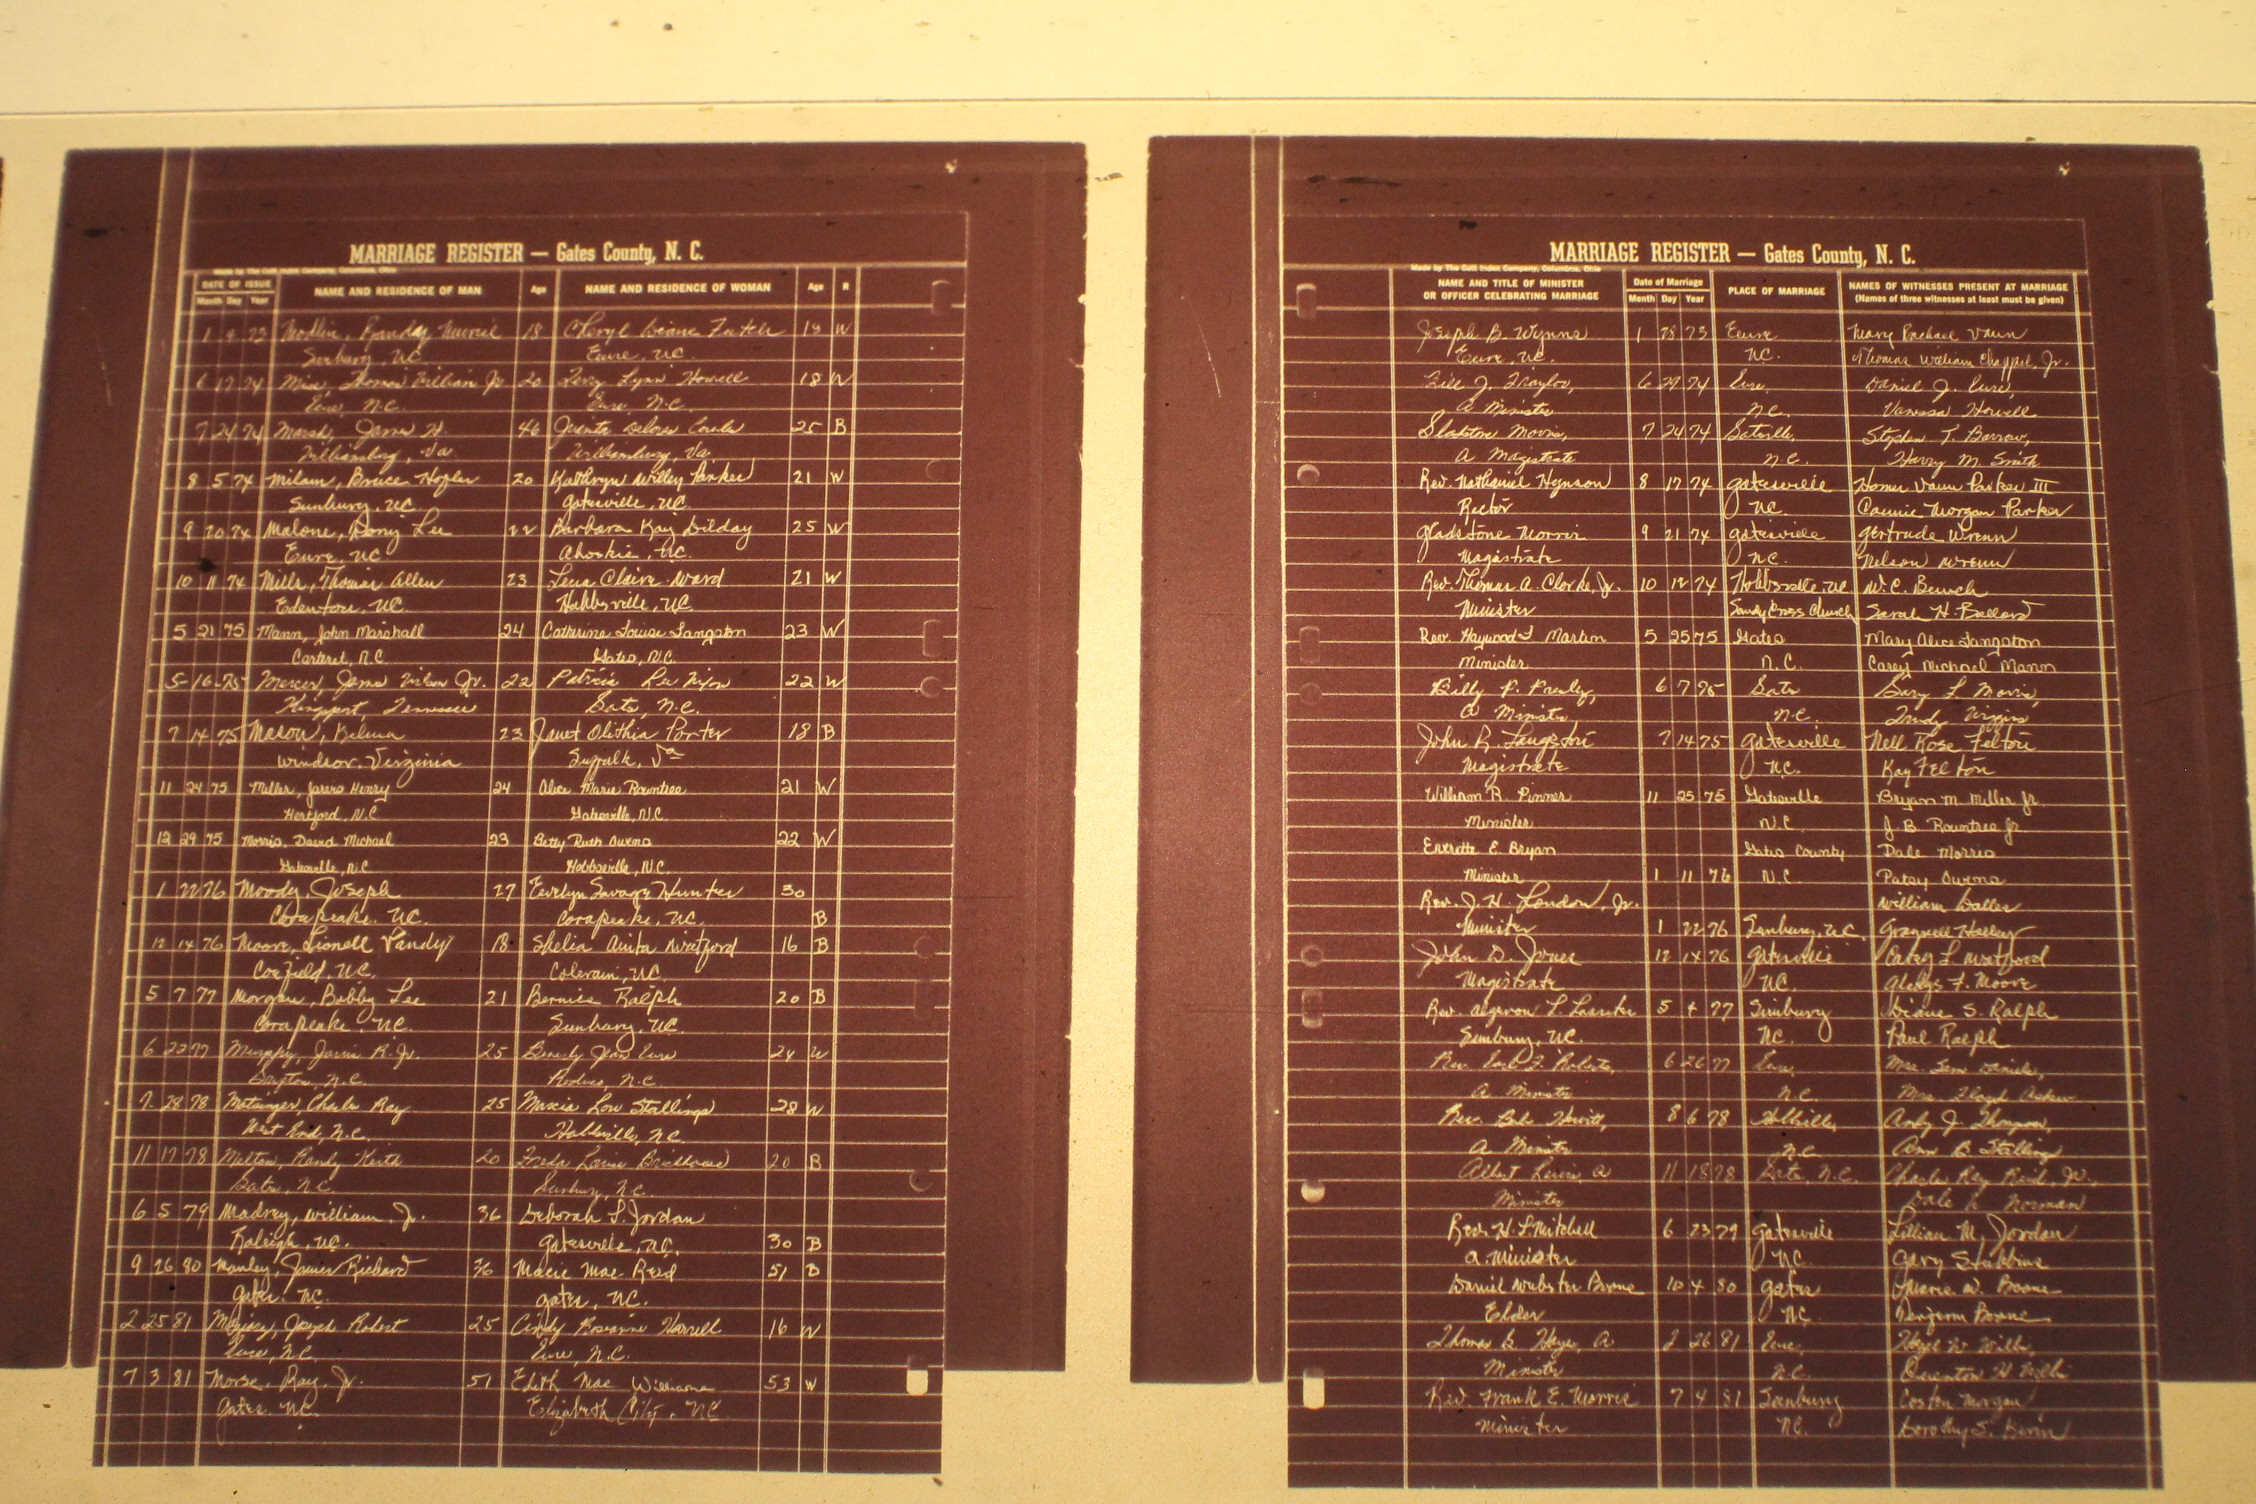 MARRIAGE REGISTER — Gates County, N. C.
Made by The Cott Index Company, Columbus, Ohio
DATE OF ISSUE NAME AND RESIDENCE OF MAN Age NAME AND RESIDENCE OF WOMAN Age R
Month Day Year
1 73 Modlin, Randy 18 Cheryl Diane 19 W
Sunbury, NC Eure, NC.
6 17 74 Thomas William Jr 20 Terry Lynn Howell 18 W
Eure, N.C. Eure, N.C.
7 24 74 Marsh, James H. 46 Delores 25 B
Williamsburg, Va Williamsburg, Va
8 5 74 Milam, Bruce 20 Kathryn Willey Parker 21 W
Sunbury, NC Gatesville, NC.
9 20 74 Malone, Lee 22 Barbara Kay Dilday 25 W
Eure, NC Ahoskie, NC.
10 11 74 Mills, Thomas Allen 23 Lena Claire Ward 21 W
Edenton, NC. Hobbsville, NC
5 21 75 Mann, John Marshall 24 Catherine Louise Langston 23 W
Carteret, N.C Gates, N.C.
5-16-75 Mercer, James Wilson Jr. 22 Patricia Lee Nixon 22 W
Kingsport, Tennessee Gates, N.C.
7 14 75 Mason, Kelma 23 Janet Olithia Porter 18 B
Windsor, Virginia Suffolk, Va
11 24 75 Miller, Jarvis Henry 24 Alice Marie Rountree 21 W
Hertford, N.C Gatesville, N.C.
12 29 75 Morris, David Michael 23 Betty Ruth Owens 22 W
Gatesville, N.C Hobbsville, N.C.
1 22 76 Moody, Joseph 27 Evelyn Savage Hunter 30
Corapeake, NC. Corapeake, NC. B
12 14 76 Moore, Lionell Vandy 18 Shelia Anita Watford 16 B
Cofield, NC. Colerain, NC
5 7 77 Morgan, Bobby Lee 21 Bernice Ralph 20 B
Corapeake, NC. Sunbury, NC.
6 22 77 Murphy, Jarvis R. Jr. 25 Beverly Jean Eure 24 W
N.C. Roduco, N.C.
7. 28 78 Matsinger, Charles Ray 25 Marcia Lou Stallings 28 W
West End, N.C. Hobbsville, NC
11 17 78 Melton, Randy Keith 20 Freda Louise Brickhouse 20 B
Gates, N.C. Sunbury, N.C.
6 5 79 Madrey, William, Jr. 36 Deborah L. Jordan
Raleigh, NC. Gatesville, NC. 30 B
9 26 80 Manley, James Richard 36 Macie Mae Reid 51 B
Gates, NC. Gates, NC.
2 25 81 Joseph Robert 25 Cindy Roseanne Harrell 16 W
Eure, N.C. Eure, N.C.
7 3 81 Morse, Ray, Jr. 51 Edith Mae Williams 53 W
Gates, NC. Elizabeth City, NC
MARRIAGE REGISTER — Gates County, N. C.
Made by The Cott Index Company, Columbus, Ohio
NAME AND TITLE OF MINISTER OR OFFICER CELEBRATING MARRIAGE Date of Marriage PLACE OF MARRIAGE NAMES OF WITNESSES PRESENT AT MARRIAGE
Month Day Year (Names of three witnesses at least must be given)
Joseph B. Wynns 1 28 73 Eure Mary Rachael Vann
Eure, NC. NC. Thomas William Chappel, Jr.
Bill J. Traylor, 6 29 74 Eure, Daniel J. Eure,
A Minister N.C. Vanessa Howell
Gladstone Morris, 7 24 74 Gatesville, Stephen T. Barrow,
A Magistrate N.C. Harry M. Smith
Rev. Nathaniel Hynson 8 17 74 Gatesville Homer Vann Parker III
Rector NC. Connie Morgan Parker
Gladstone Morris 9 21 74 Gatesville Gertrude Wrenn
Magistrate N.C. Nelson Wrenn
Rev. Thomas A. Clarke, Jr. 10 12 74 Hobbsville, NC W. C. Bunch
Minister Sandy Cross Church Sarah H. Ballard
Rev. Haywood L Martin 5 25 75 Gates Mary Alice Langston
Minister N.C. Carey Michael Mann
Billy P. Presley, 6 7 75 Gates Gary L Morris,
A Minister N.C. Trudy Wiggins
John R. Langston 7 14 75 Gatesville Nell Rose Felton
Magistrate NC. Kay Felton
William R. Pinner 11 25 75 Gatesville Bryan M. Miller Jr.
Minister N.C J. B. Rountree Jr
Everette E. Bryan Gates County Dale Morris
Minister 1 11 76 N.C. Patsy Owens
Rev. J. H. London, Jr. William
Minister 1 22 76 Sunbury, NC.
John D. Jones 12 14 76 Gatesville Carey L Watford
Magistrate NC. Gladys F. Moore
Rev. Algernon L. Lassiter 5 7 77 Sunbury Diane S. Ralph
Sunbury, NC. NC. Paul Ralph
Rev. Earl F. Roberts, 6 26 77 Eure, Mrs. Sam Daniels,
A Minister N.C. Mrs. Lloyd Askew
Rev. Bob Hewitt, 8 6 78 Hobbsville, Andy J. Thompson,
A Minister N.C Ann B Stallings
Albert Lewis, A 11 18 78 Gates, N.C. Charles Ray Reid, Jr.,
Minister Dale Norman
Rev. H. L. Mitchell 6 23 79 Gatesville Lillian M. Jordan
A. Minister NC. Gary Stubbins
Daniel Webster Boone 10 4 80 Gates W. Boone
Elder NC. Boone
Thomas B. Hayes, A 2 26 81 Eure, Hazel W Willis,
Minister N.C. Quenton H Willis
Rev. Frank E. Morris 7 4 81 Sunbury Costen Morgan
Minister NC. Dorothy S.